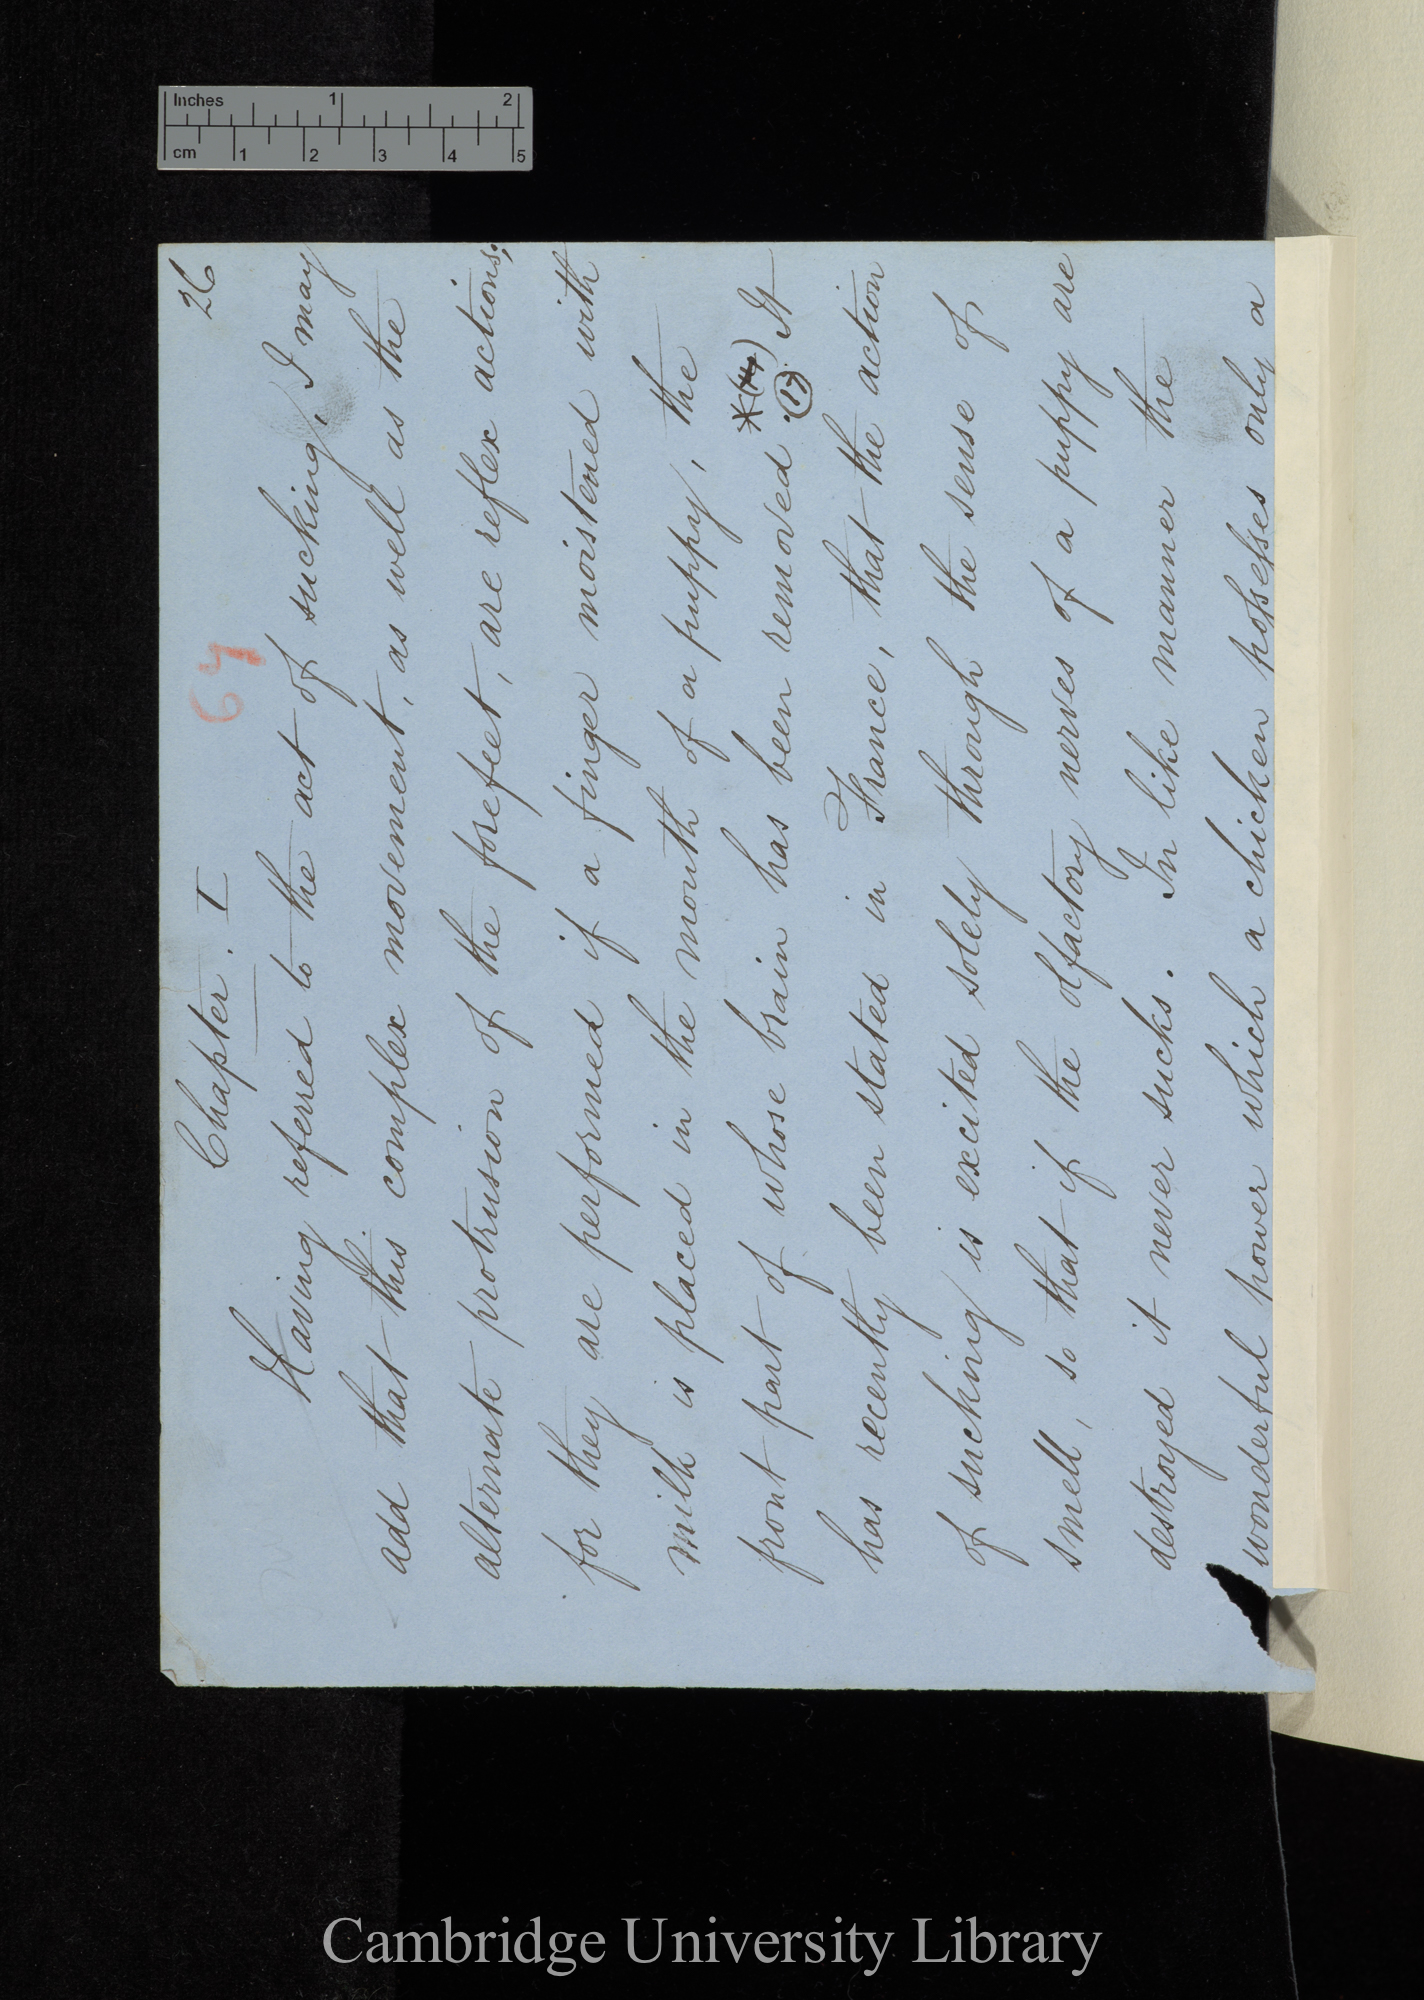 Inches 1 2
cm 1 2 3 4 5
26
64
Chapter. I
Having referred to the act of sucking, I may
add that this complex movement, as well as the
alternate protrusion of the forefeet, are reflex actions;
for they are performed if a finger moistened with
milk is placed in the mouth of a puppy, the
front part of whose brain has been removed. (17) It
has recently been stated in France, that the action
of sucking is excited solely through the sense of
smell, so that if the olfactory nerves of a puppy are
destroyed it never sucks. In like manner the
wonderful power which a chicken possesses only a
Cambridge University Library